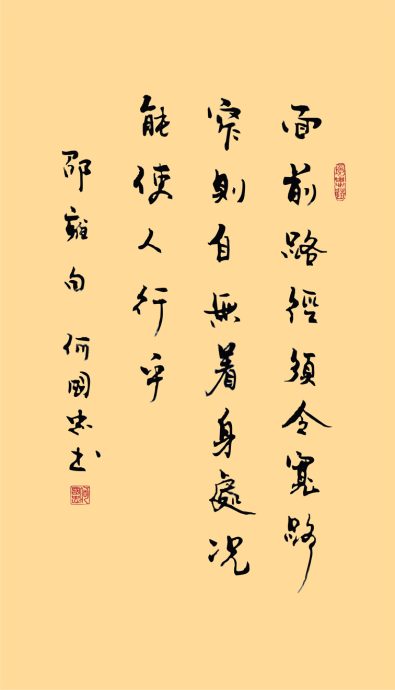 面前路徑須令寬路
窄則自無着身處况
能使人行乎
邵雍句 何國忠書